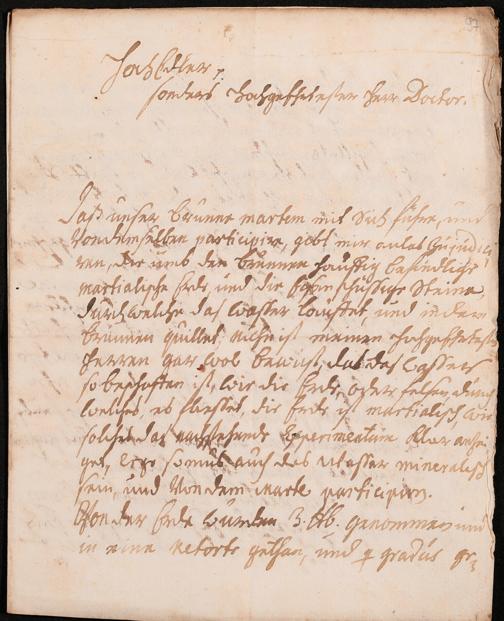 HochEdler,
sonders Hochgeehrtester Herr Doctor.
Daß unser brunne martem mit sich führe, und
von demselben participire, gibt mir anlas zu judici
ren, die umb den brunnen häuffig befindliche
martialische Erde, und die Steine,
durch welche das wasser lauffet, und in dem
brunnen quillet, auch ist meinem Hochgeehrtesten
Herren gar wol bewust, daß das wasser
so beschaffen ist, wie die Erde, oder felsen, durch
welches es fliesset, die Erde ist martialisch, wie
solches das nachstehende Experimentum klar anzei
get, Ergo so mus auch das wasser mineralisch
sein, und von dem marte participiren.
Von der Erde wurden 3. lb. genommen und
in eine retorte gethan, und p gradus ge